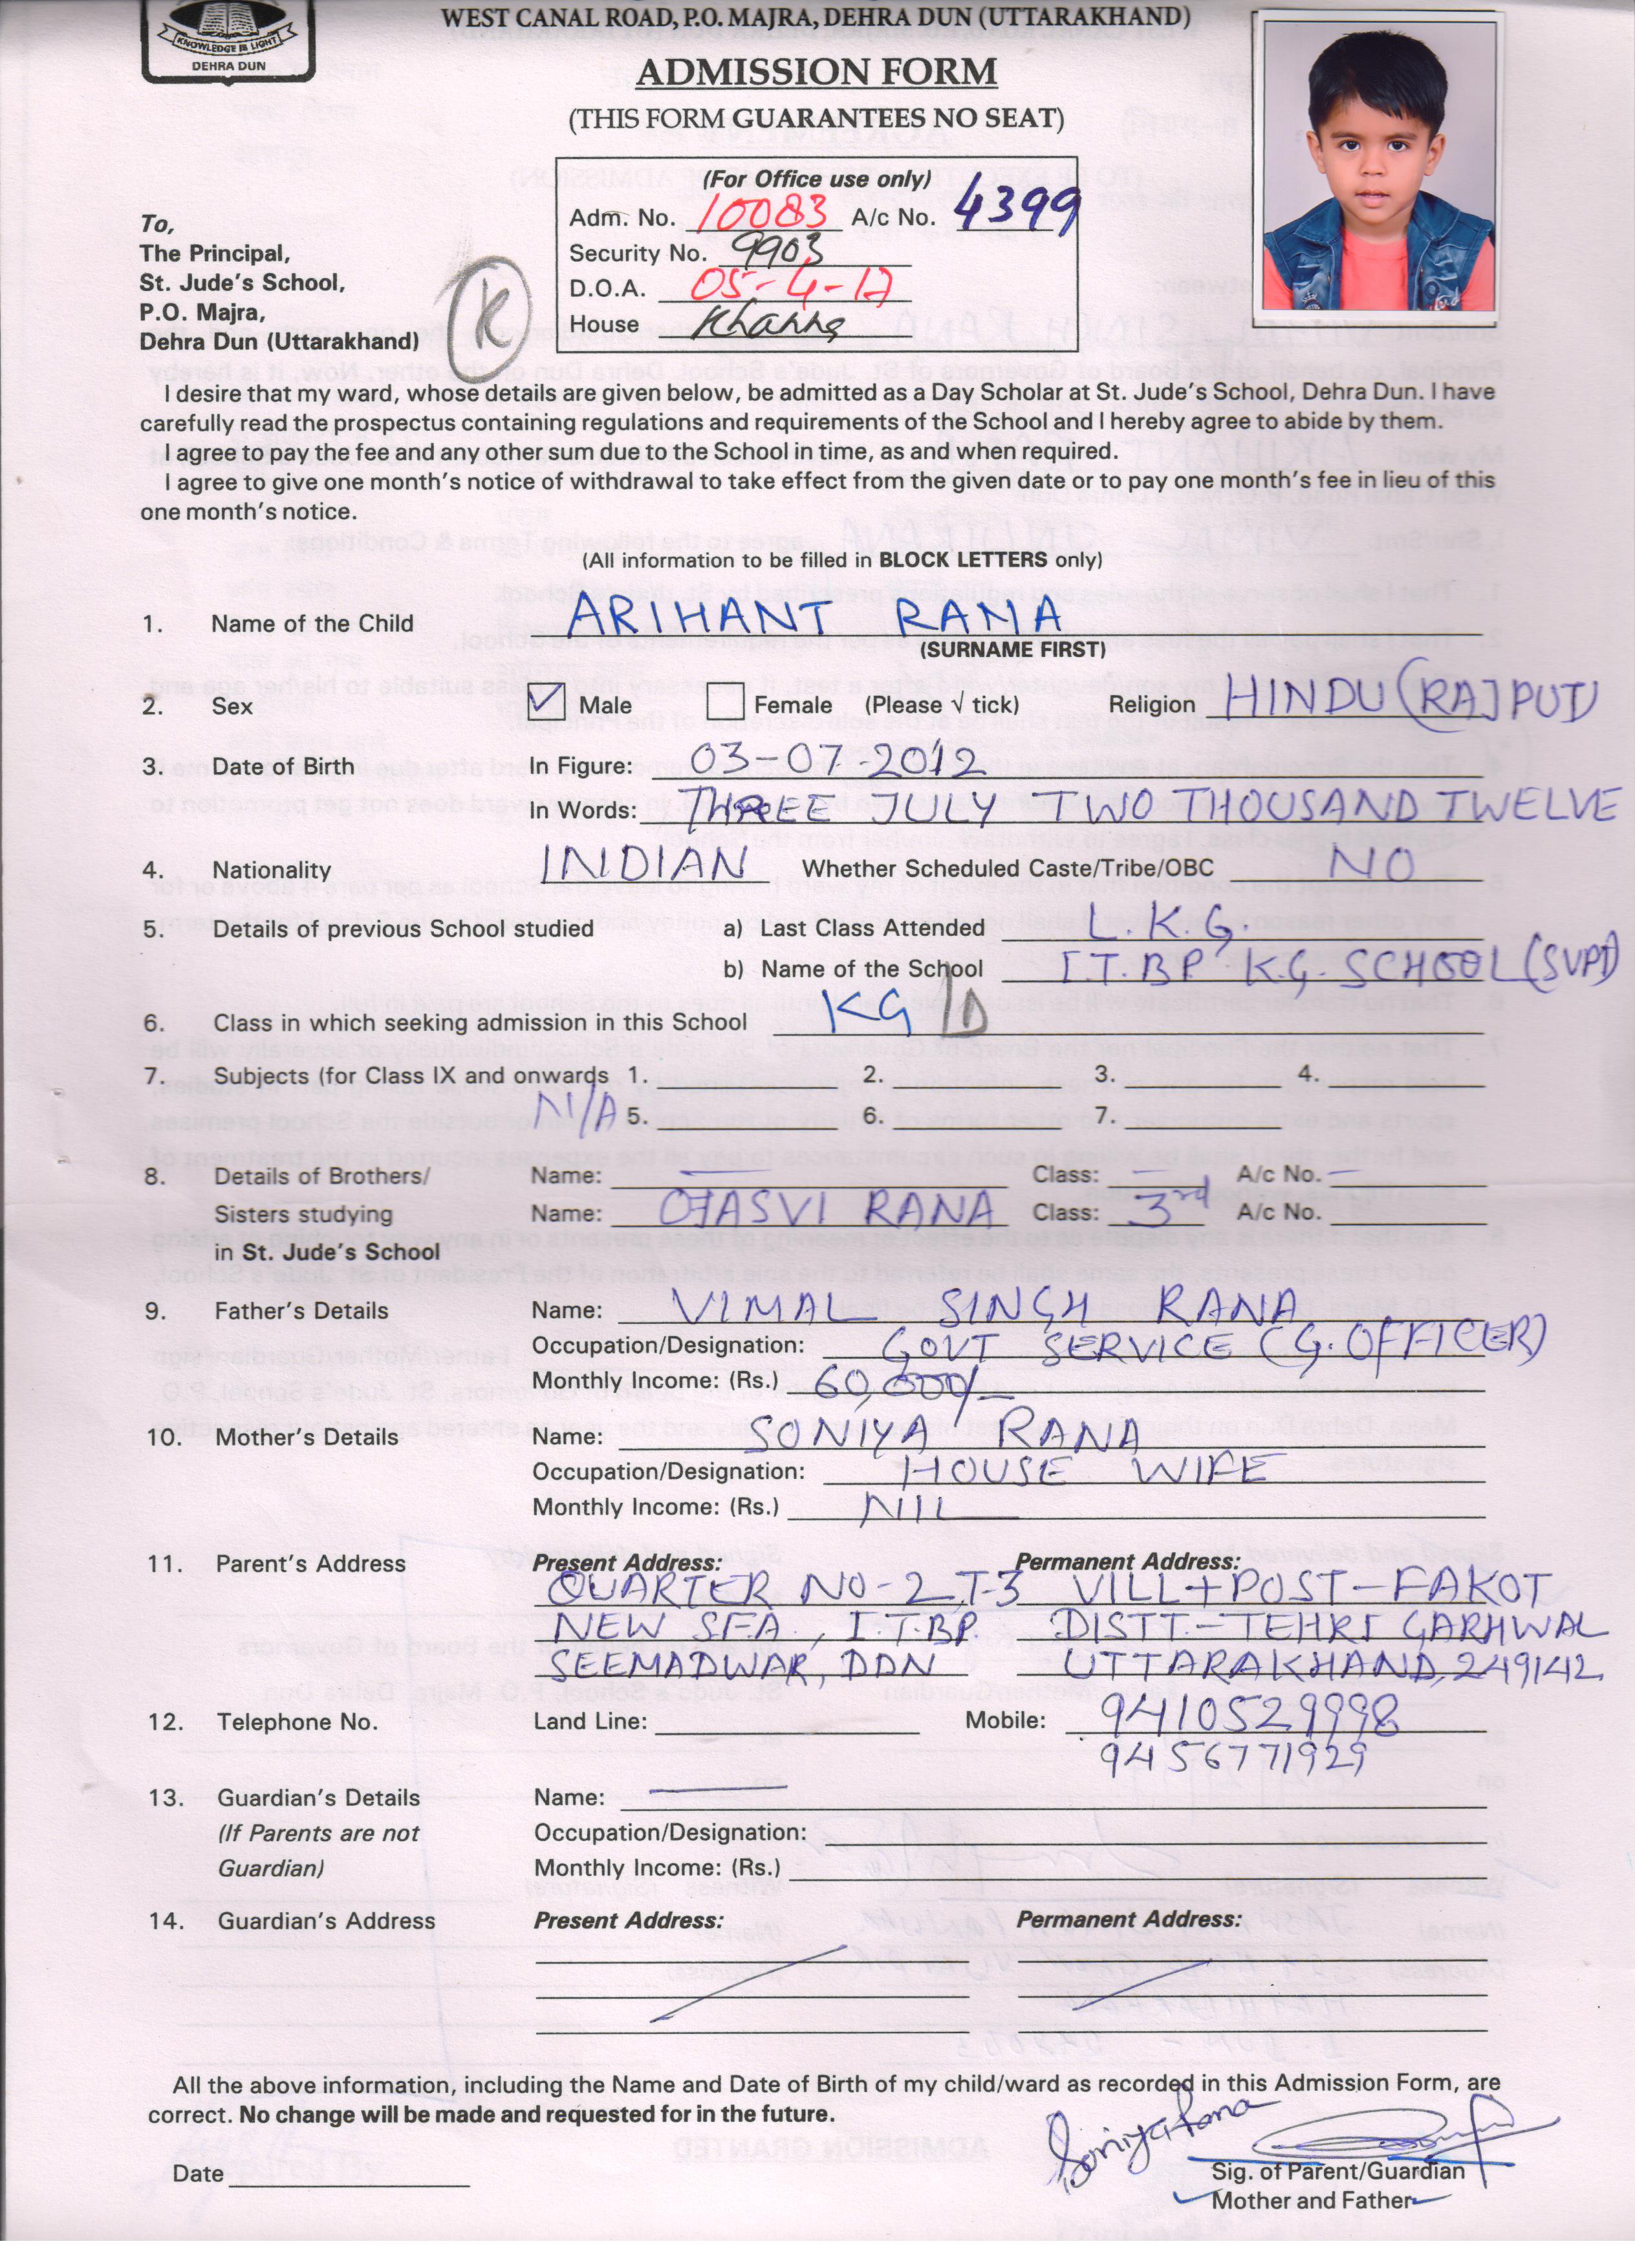 KNOWLEDGE IS LIGHT
DEHRA DUN
WEST CANAL ROAD, P.O. MAJRA, DEHRA DUN (UTTARAKHAND)
ADMISSION FORM
(THIS FORM GUARANTEES NO SEAT)
(For Office use only)
Adm. No. 10083 A/c No. 4399
Security No. 9903
D.O.A. 05-4-17
House Khanna
To,
The Principal,
St. Jude's School,
P.O. Majra,
Dehra Dun (Uttarakhand)
K
I desire that my ward, whose details are given below, be admitted as a Day Scholar at St. Jude's School, Dehra Dun. I have
carefully read the prospectus containing regulations and requirements of the School and I hereby agree to abide by them.
I agree to pay the fee and any other sum due to the School in time, as and when required.
I agree to give one month's notice of withdrawal to take effect from the given date or to pay one month's fee in lieu of this
one month's notice.
(All information to be filled in BLOCK LETTERS only)
1. Name of the Child ARIHANT RANA
(SURNAME FIRST)
2. Sex ✓ Male Female (Please √ tick) Religion HINDU (RAJPUT)
3. Date of Birth In Figure: 03-07-2012
In Words: THREE JULY TWO THOUSAND TWELVE
4. Nationality INDIAN Whether Scheduled Caste/Tribe/OBC NO
5. Details of previous School studied a) Last Class Attended L.K.G.
b) Name of the School I.T.BP K.G. SCHOOL (SVPI)
6. Class in which seeking admission in this School KG/D
7. Subjects (for Class IX and onwards 1. 2. 3. 4.
N/A 5. 6. 7.
8. Details of Brothers/ Name: — Class: — A/c No. —
Sisters studying Name: OJASVI RANA Class: 3rd A/c No.
in St. Jude's School
9. Father's Details Name: VIMAL SINGH RANA
Occupation/Designation: GOVT SERVICE (G. OFFICER)
Monthly Income: (Rs.) 60,000/-
10. Mother's Details Name: SONIYA RANA
Occupation/Designation: HOUSE WIFE
Monthly Income: (Rs.) NIL
11. Parent's Address Present Address: Permanent Address:
QUARTER NO-2, T-3 VILL+POST-FAKOT
NEW SFA., I.T.BP. DISTT.-TEHRI GARHWAL
SEEMADWAR, DDN UTTARAKHAND, 249142
12. Telephone No. Land Line: Mobile: 9410529998
9456771929
13. Guardian's Details Name: —
(If Parents are not Occupation/Designation:
Guardian) Monthly Income: (Rs.)
14. Guardian's Address Present Address: Permanent Address:
All the above information, including the Name and Date of Birth of my child/ward as recorded in this Admission Form, are
correct. No change will be made and requested for in the future.
Soniya Rana
Date Sig. of Parent/Guardian
Mother and Father